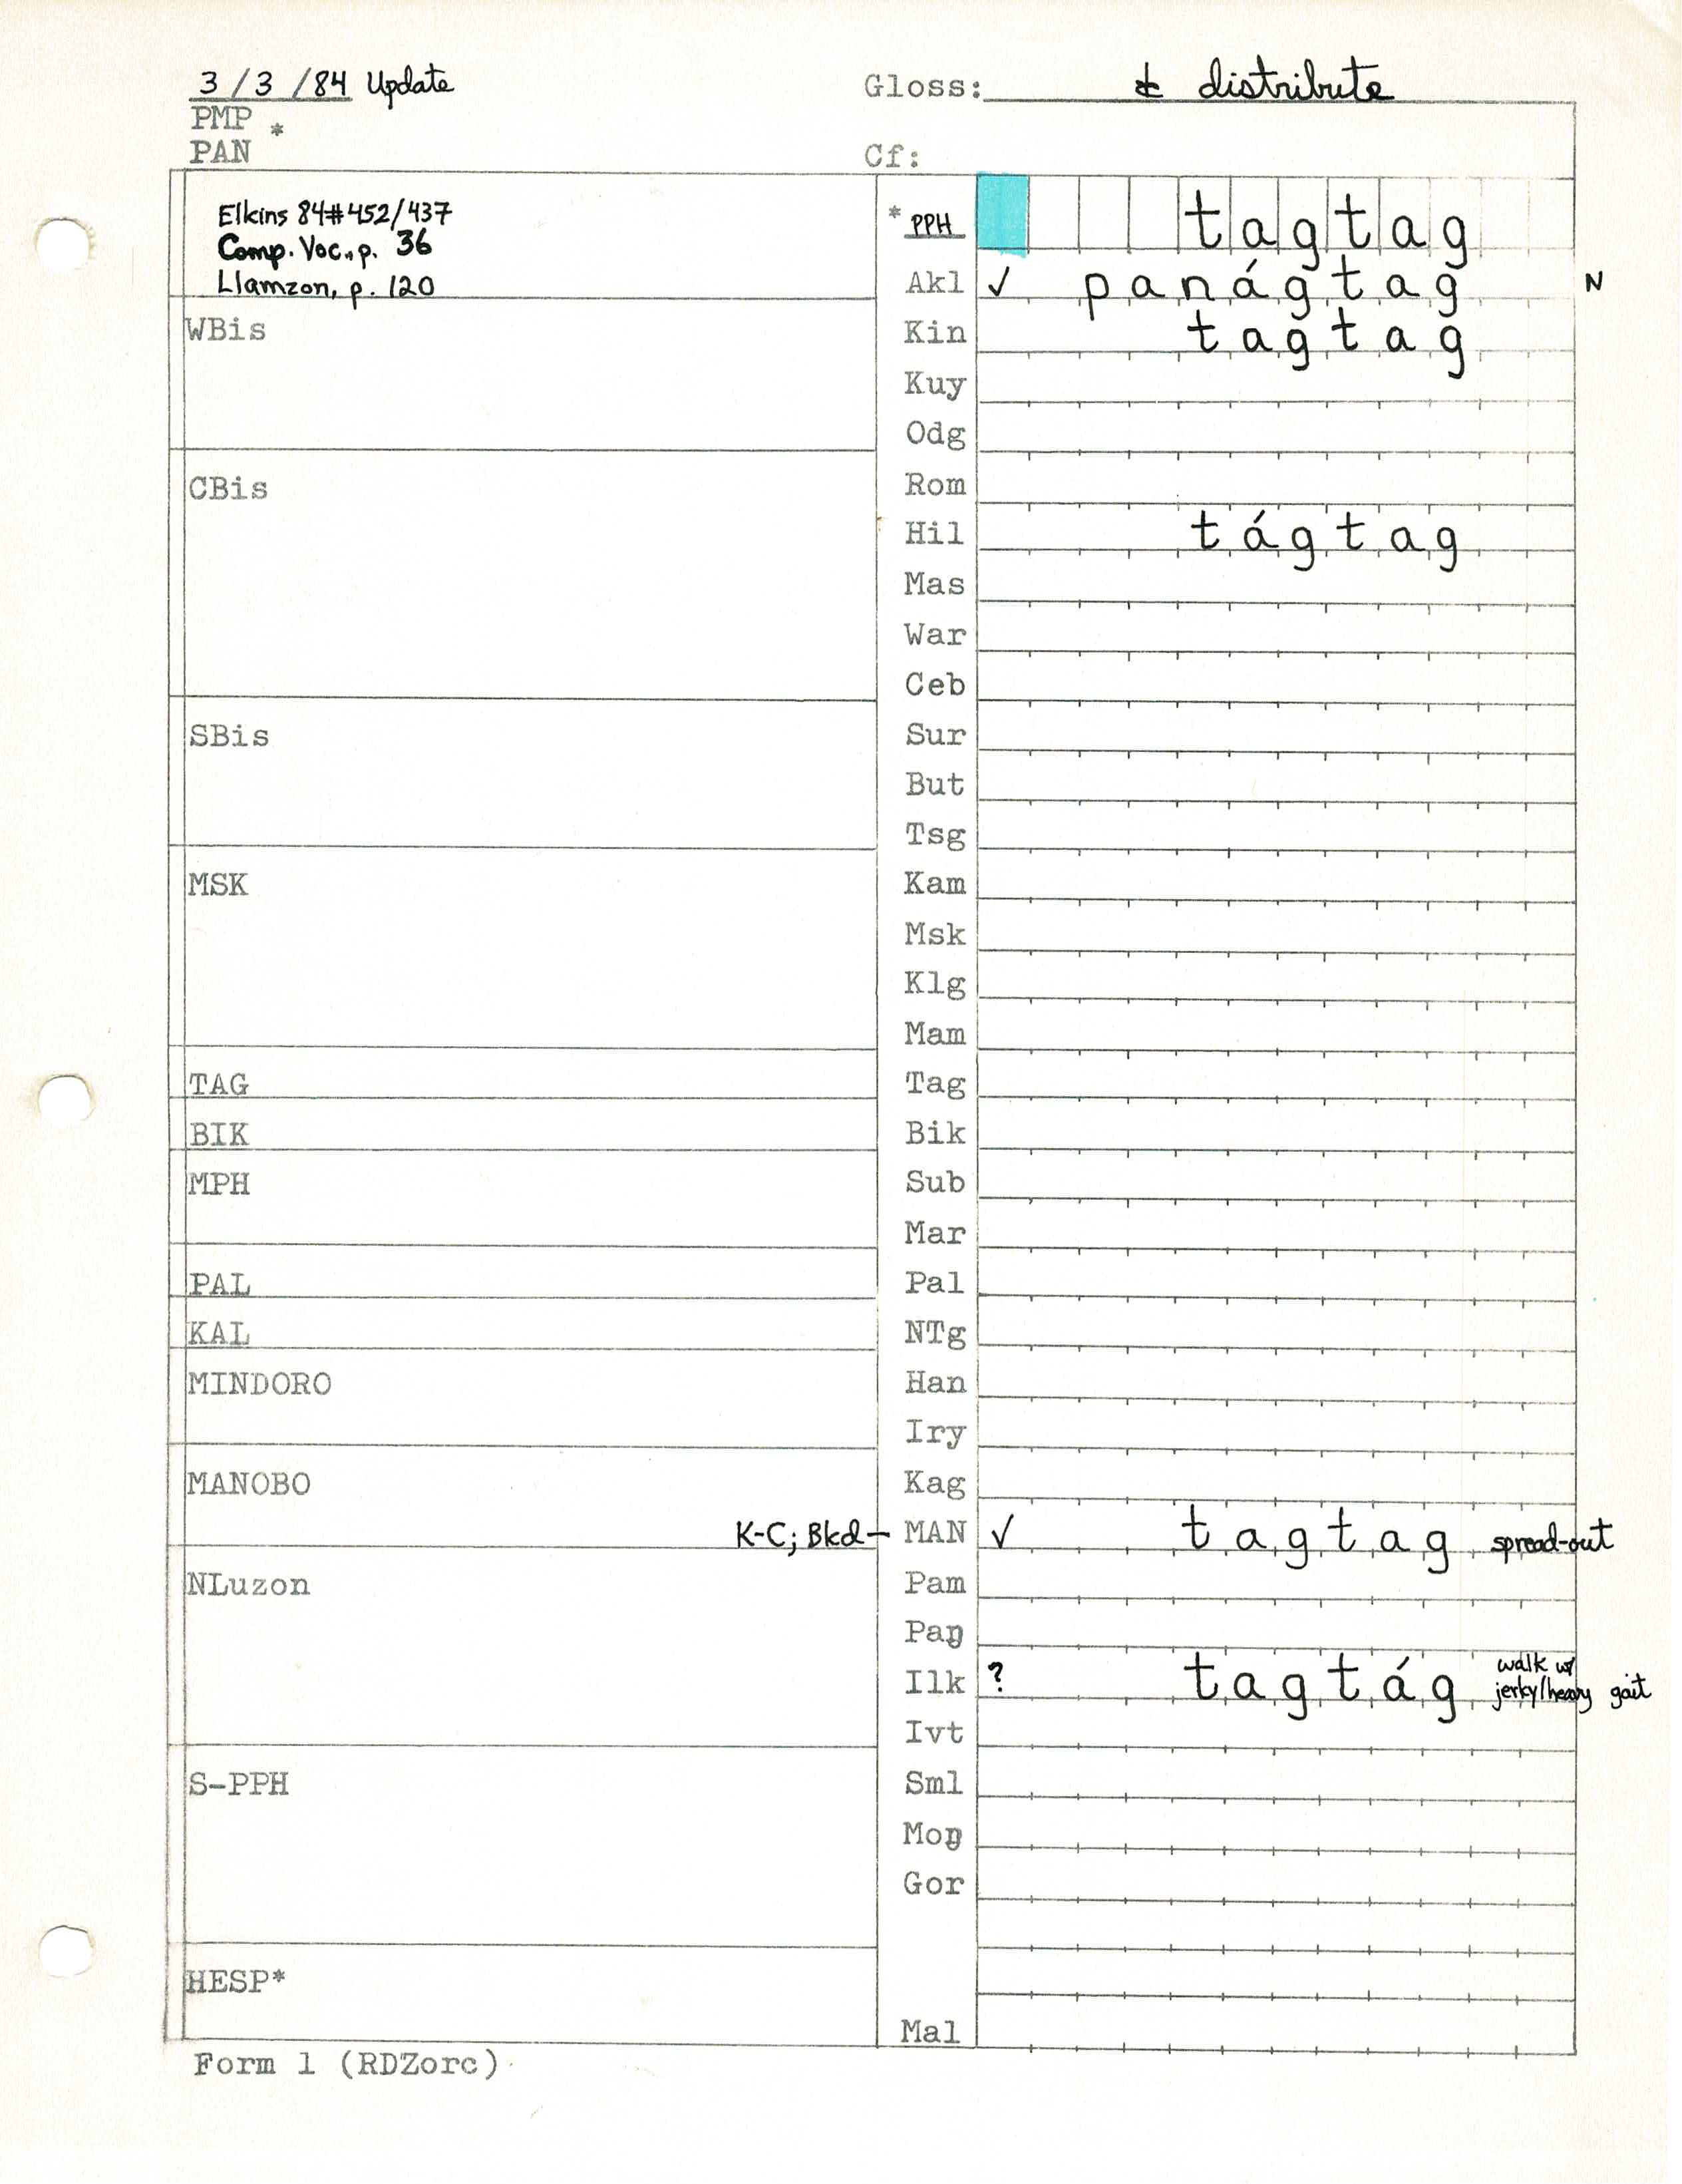 3/3/84 Update
Gloss: distribute
PMP *
PAN
Cf:
Elkins 84#452/437
Comp. Voc., p. 36
Llamzon, p. 120
* PPH tagtag
Akl ✓ panágtag N
WBis
Kin tagtag
Kuy
Odg
CBis
Rom
Hil tágtag
Mas
War
Ceb
SBis
Sur
But
Tsg
MSK
Kam
Msk
Klg
Mam
TAG
Tag
BIK
Bik
MPH
Sub
Mar
PAL
Pal
KAL
NTg
MINDORO
Han
Iry
MANOBO
Kag
K-C; Bkd – MAN ✓ tagtag spread-out
NLuzon
Pam
Paŋ
Ilk ? tagtág walk w/
jerky/heavy gait
Ivt
S-PPH
Sml
Moŋ
Gor
HESP*
Mal
Form 1 (RDZorc)